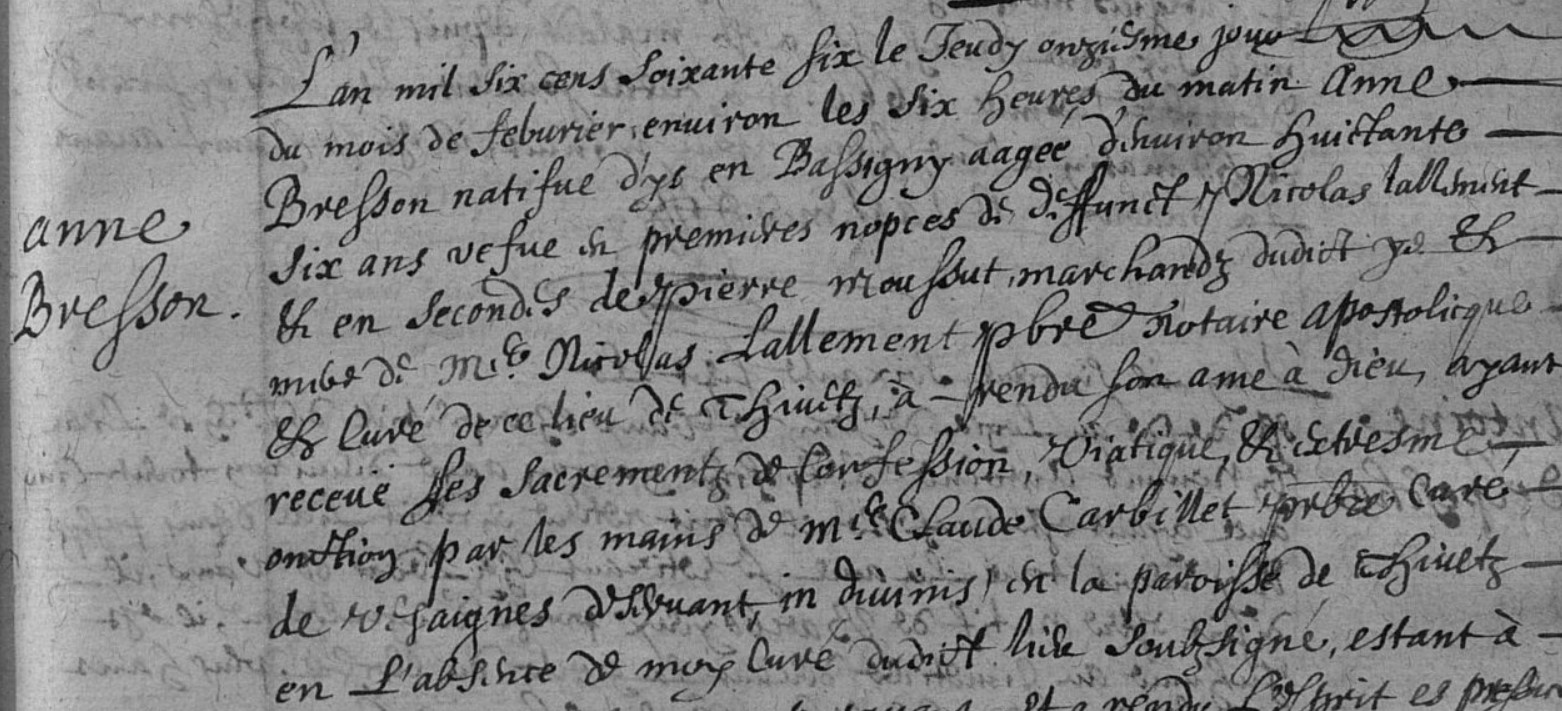 L'an mil six cens soixante six le Jeudy onziesme jour
du mois de feburier, enuiron les six heures du matin Anne
Bresson natifue d'ys en Bassigny aagée d'enuiron huictante
six ans vefue en premieres nopces de deffunct Nicolas lallement
anne
& en secondes de Pierre moussut, marchandz dudict ys &
Bresson.
mere de Mre Nicolas Lallement pbre Notaire apostolicque
& Curé de ce lieu de Thiuetz, à rendu son ame à dieu, ayant
receue ses sacrementz de Confession, Viatique, & extresme
onction par les mains de Mre Claude Carbillet prbre Curé
de Vesaignes deseruant, in diuinis, en la paroisse de Thiuetz
en L'absence de moy Curé dudict lieu soubsigné, estant à
et a rendu L'esprit es